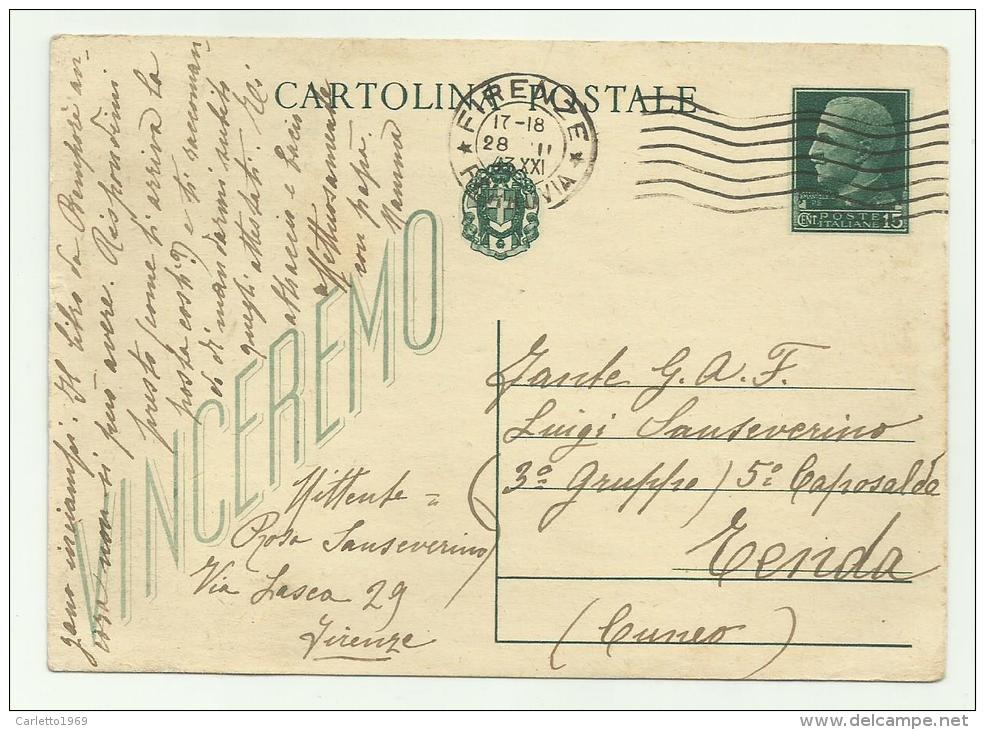 CARTOLINA POSTALE
FIRENZE
17-18
28 II
43 XXI
FERROVIA
POSTE
ITALIANE
CENT. 15
VINCEREMO
Fante G. A. F.
Luigi Sanseverino
(3º Gruppo) 5º Caposaldo
Tenda
(Cuneo)
Mittente =
Rosa Sanseverino
Via Lasca 29
Firenze
zano inciampi. Il libro da Bemporè an-
cora non si può avere. Rispondimi
presto (come ti arriva la
posta così?) e ti raccoman
do di mandarmi subito
quegli attestati. Ti
abbraccio e bacio
affettuosamente
con papà.
Mamma
Carletto1969
www.delcampe.net